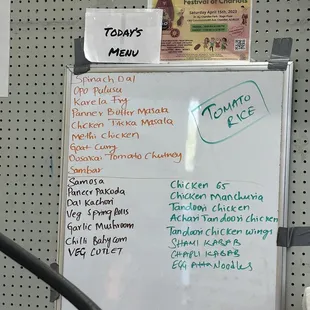 TODAY'S
MENU
Festival of Chariots
Saturday April 15th, 2023
SPINACH Dal
OPO Pulusu
Karela Fry
Panner Butter Masala
Chicken Ticka Masala
Methi Chicken
Goat Curry
Dosakai Tomato Chutney
Sambar
TOMATO
RICE
Samosa
Paneer Pakoda
Dal Kachori
Veg Spring Rolls
Garlic Mushroom
Chilli Baby corn
VEG CUTLET
Chicken 65
Chicken Manchuria
Tandoori chicken
Achari Tandoori chicken
Tandoori Chicken wings
SHAMI KABAB
CHAPLI KABAB
EGG Atta Noodles